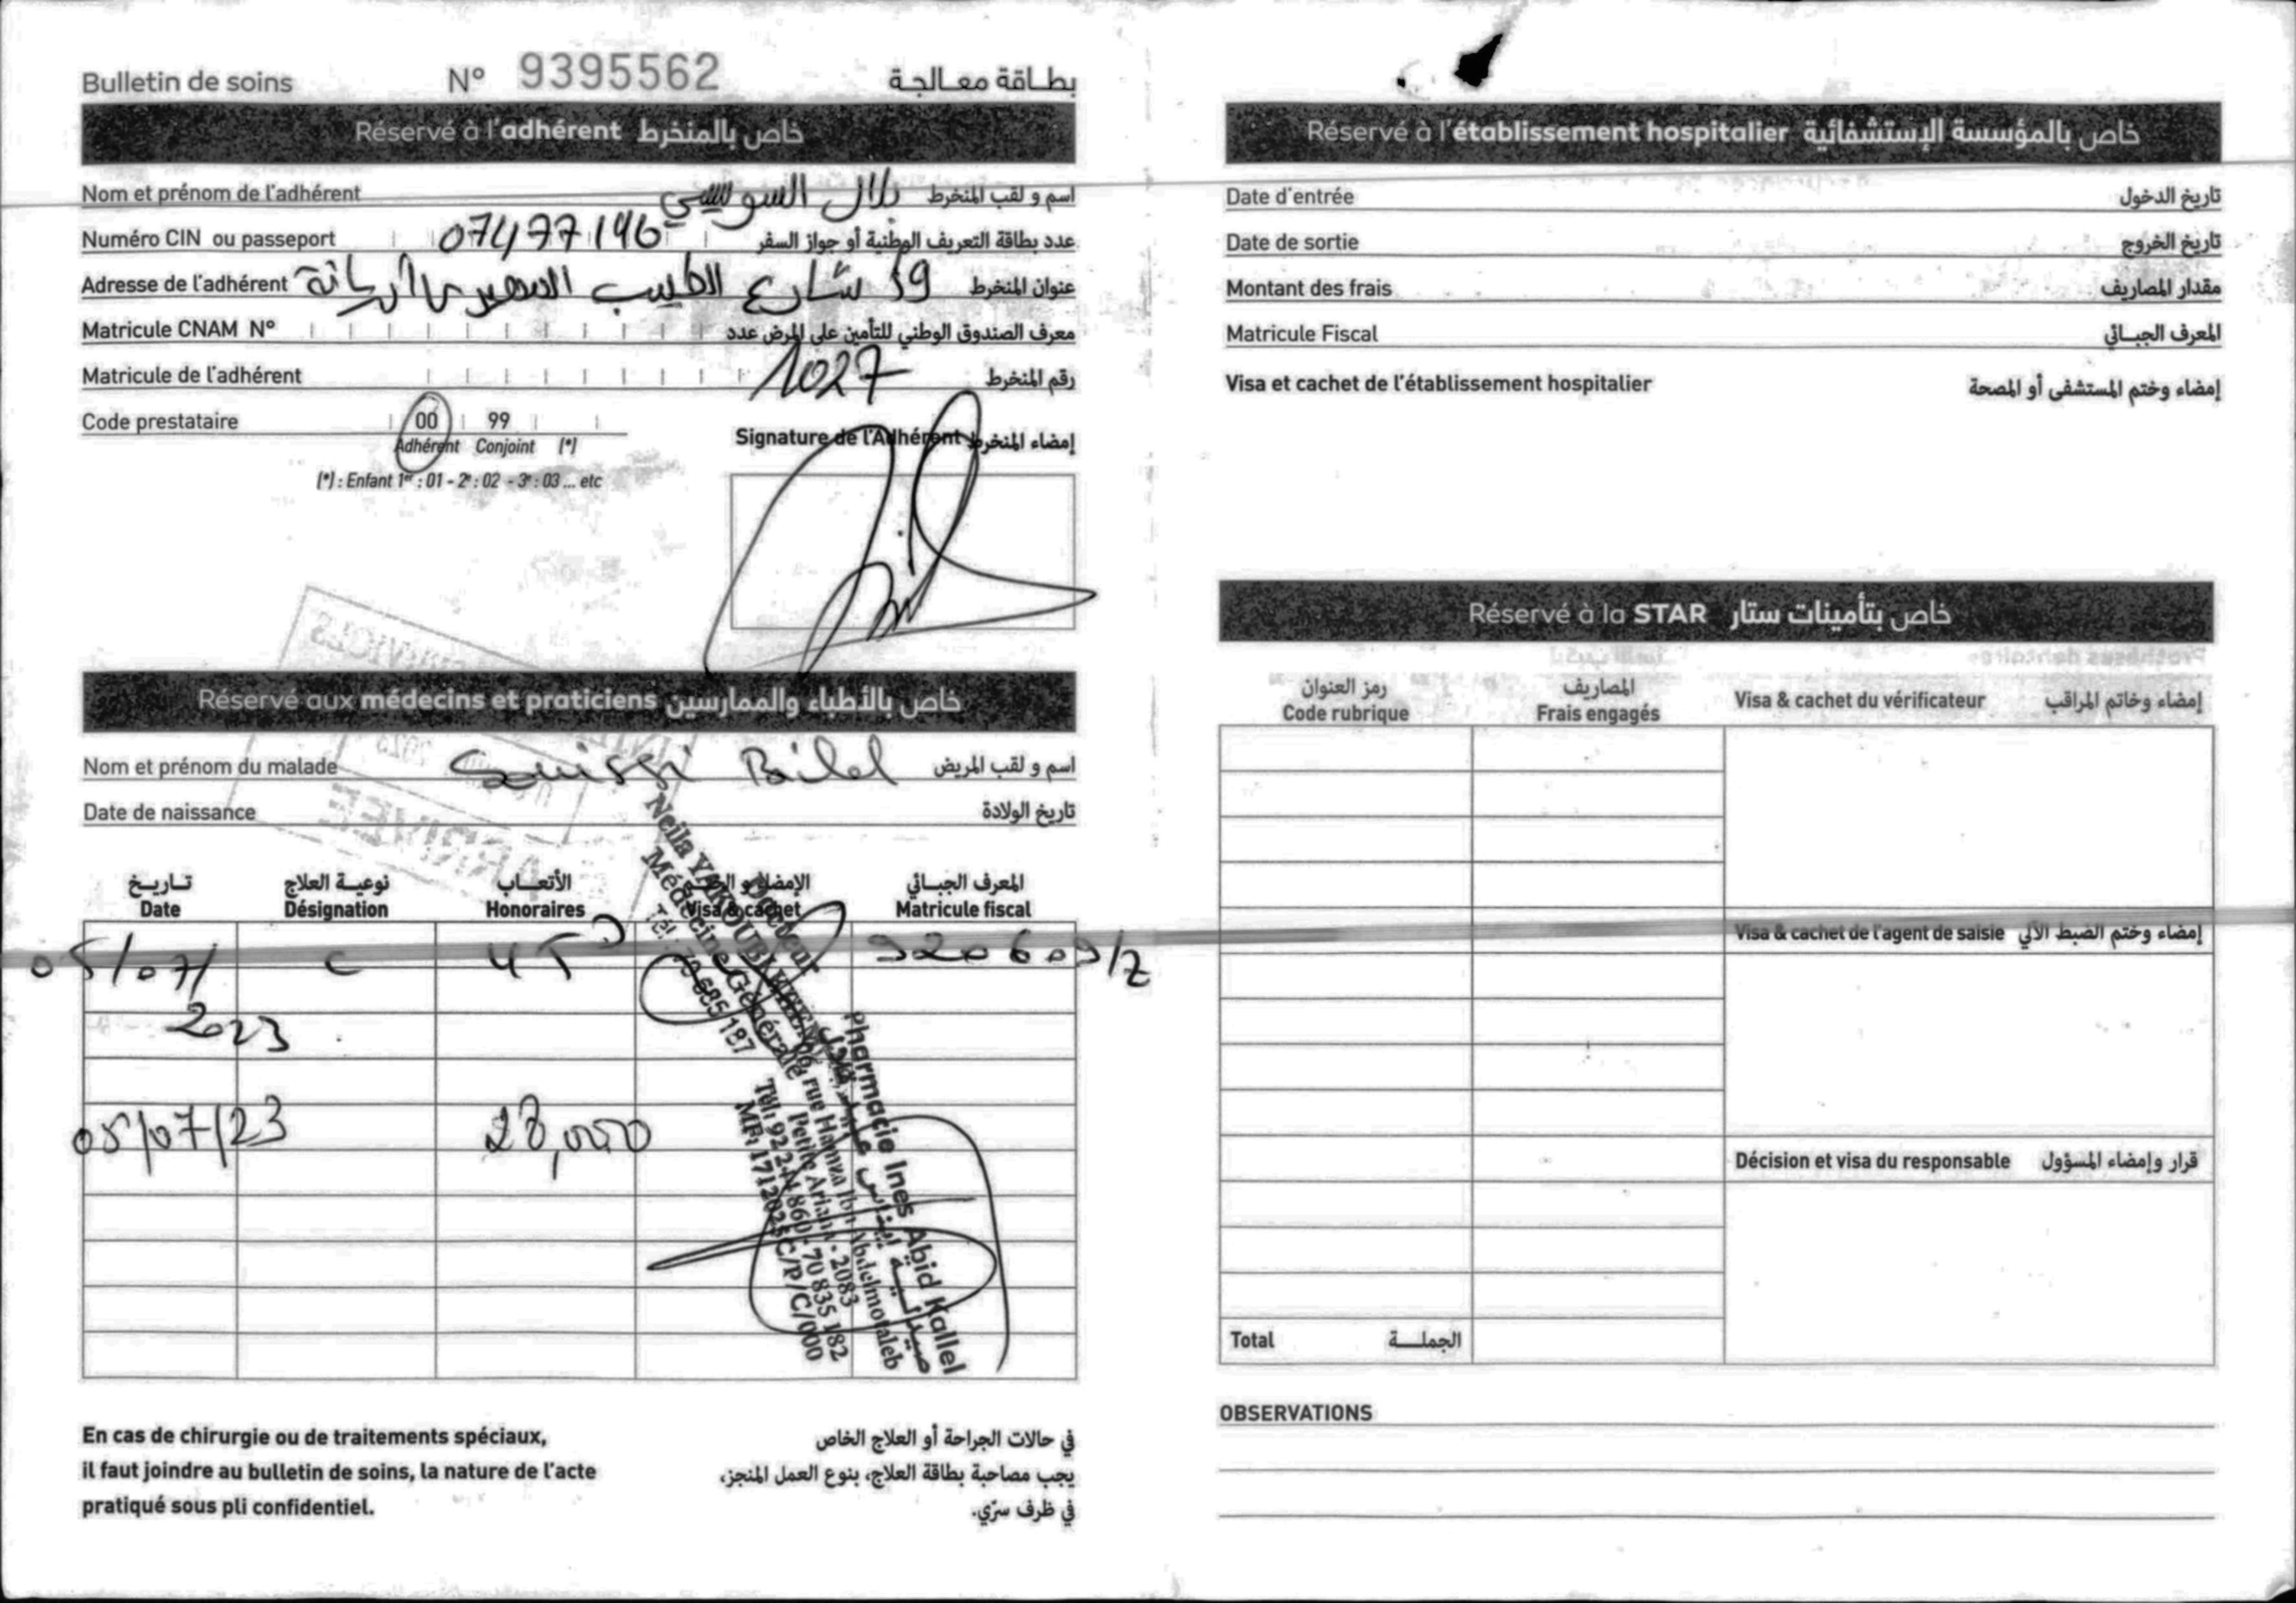 Bulletin de soins N° 9395562 بطاقة معالجة
Réservé à l'adhérent خاص بالمنخرط
Nom et prénom de l'adhérent بلال السويسي اسم و لقب المنخرط
Numéro CIN ou passeport 07477196 عدد بطاقة التعريف الوطنية أو جواز السفر
Adresse de l'adhérent 59 شارع الطيب المهيري أريانة عنوان المنخرط
Matricule CNAM N° معرف الصندوق الوطني للتأمين على المرض عدد
Matricule de l'adhérent 1027 رقم المنخرط
Code prestataire 00 99
Adhérent Conjoint (*)
(*) : Enfant 1er : 01 - 2e : 02 - 3e : 03 ... etc
Signature de l'Adhérent إمضاء المنخرط
Réservé aux médecins et praticiens خاص بالأطباء والممارسين
Nom et prénom du malade Souissi Bilel اسم و لقب المريض
Date de naissance تاريخ الولادة
تاريخ نوعية العلاج الأتعاب الإمضاء و الختم المعرف الجبائي
Date Désignation Honoraires Visa & cachet Matricule fiscal
05/07/ C 45D 920609/Z
2023
Docteur
Neila
Médecine Générale
05/07/23 28,000
Pharmacie Ines Abid Kallel
صيدلية إيناس
rue Hamza Ibn Abdelmotaleb
Petite Ariana - 2083
70 835 182
En cas de chirurgie ou de traitements spéciaux,
il faut joindre au bulletin de soins, la nature de l'acte
pratiqué sous pli confidentiel.
في حالات الجراحة أو العلاج الخاص
يجب مصاحبة بطاقة العلاج، بنوع العمل المنجز،
في ظرف سرّي.
Réservé à l'établissement hospitalier خاص بالمؤسسة الإستشفائية
Date d'entrée تاريخ الدخول
Date de sortie تاريخ الخروج
Montant des frais مقدار المصاريف
Matricule Fiscal المعرف الجبائي
Visa et cachet de l'établissement hospitalier إمضاء وختم المستشفى أو المصحة
Réservé à la STAR خاص بتأمينات ستار
رمز العنوان المصاريف
Code rubrique Frais engagés Visa & cachet du vérificateur إمضاء وخاتم المراقب
Visa & cachet de l'agent de saisie إمضاء وختم الضبط الآلي
Décision et visa du responsable قرار وإمضاء المسؤول
Total الجملة
OBSERVATIONS